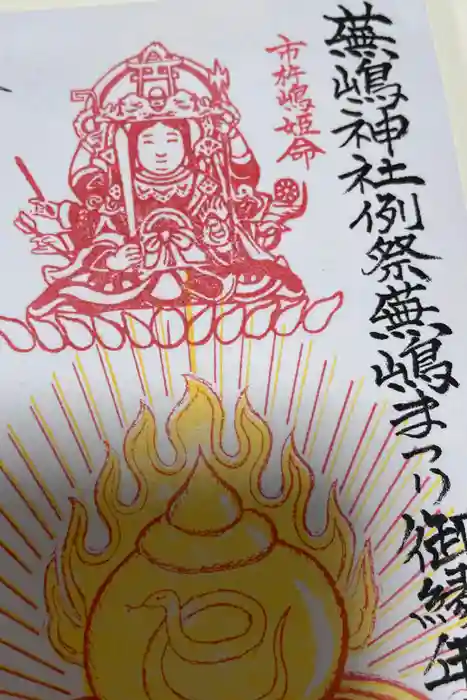 蕪嶋神社例祭蕪嶋まつり御縁年
市杵嶋姫命